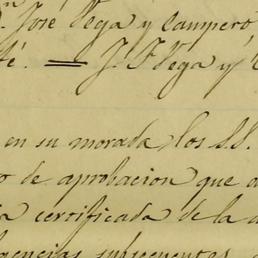 n
José Vega y Campero
té. = J. F Vega y
en su morada, los S.S.
o de aprobacion que a
a certificada de la
gencias subsecuentes